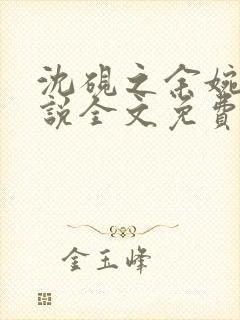 沈砚之余婉
說全文免費
金玉峰